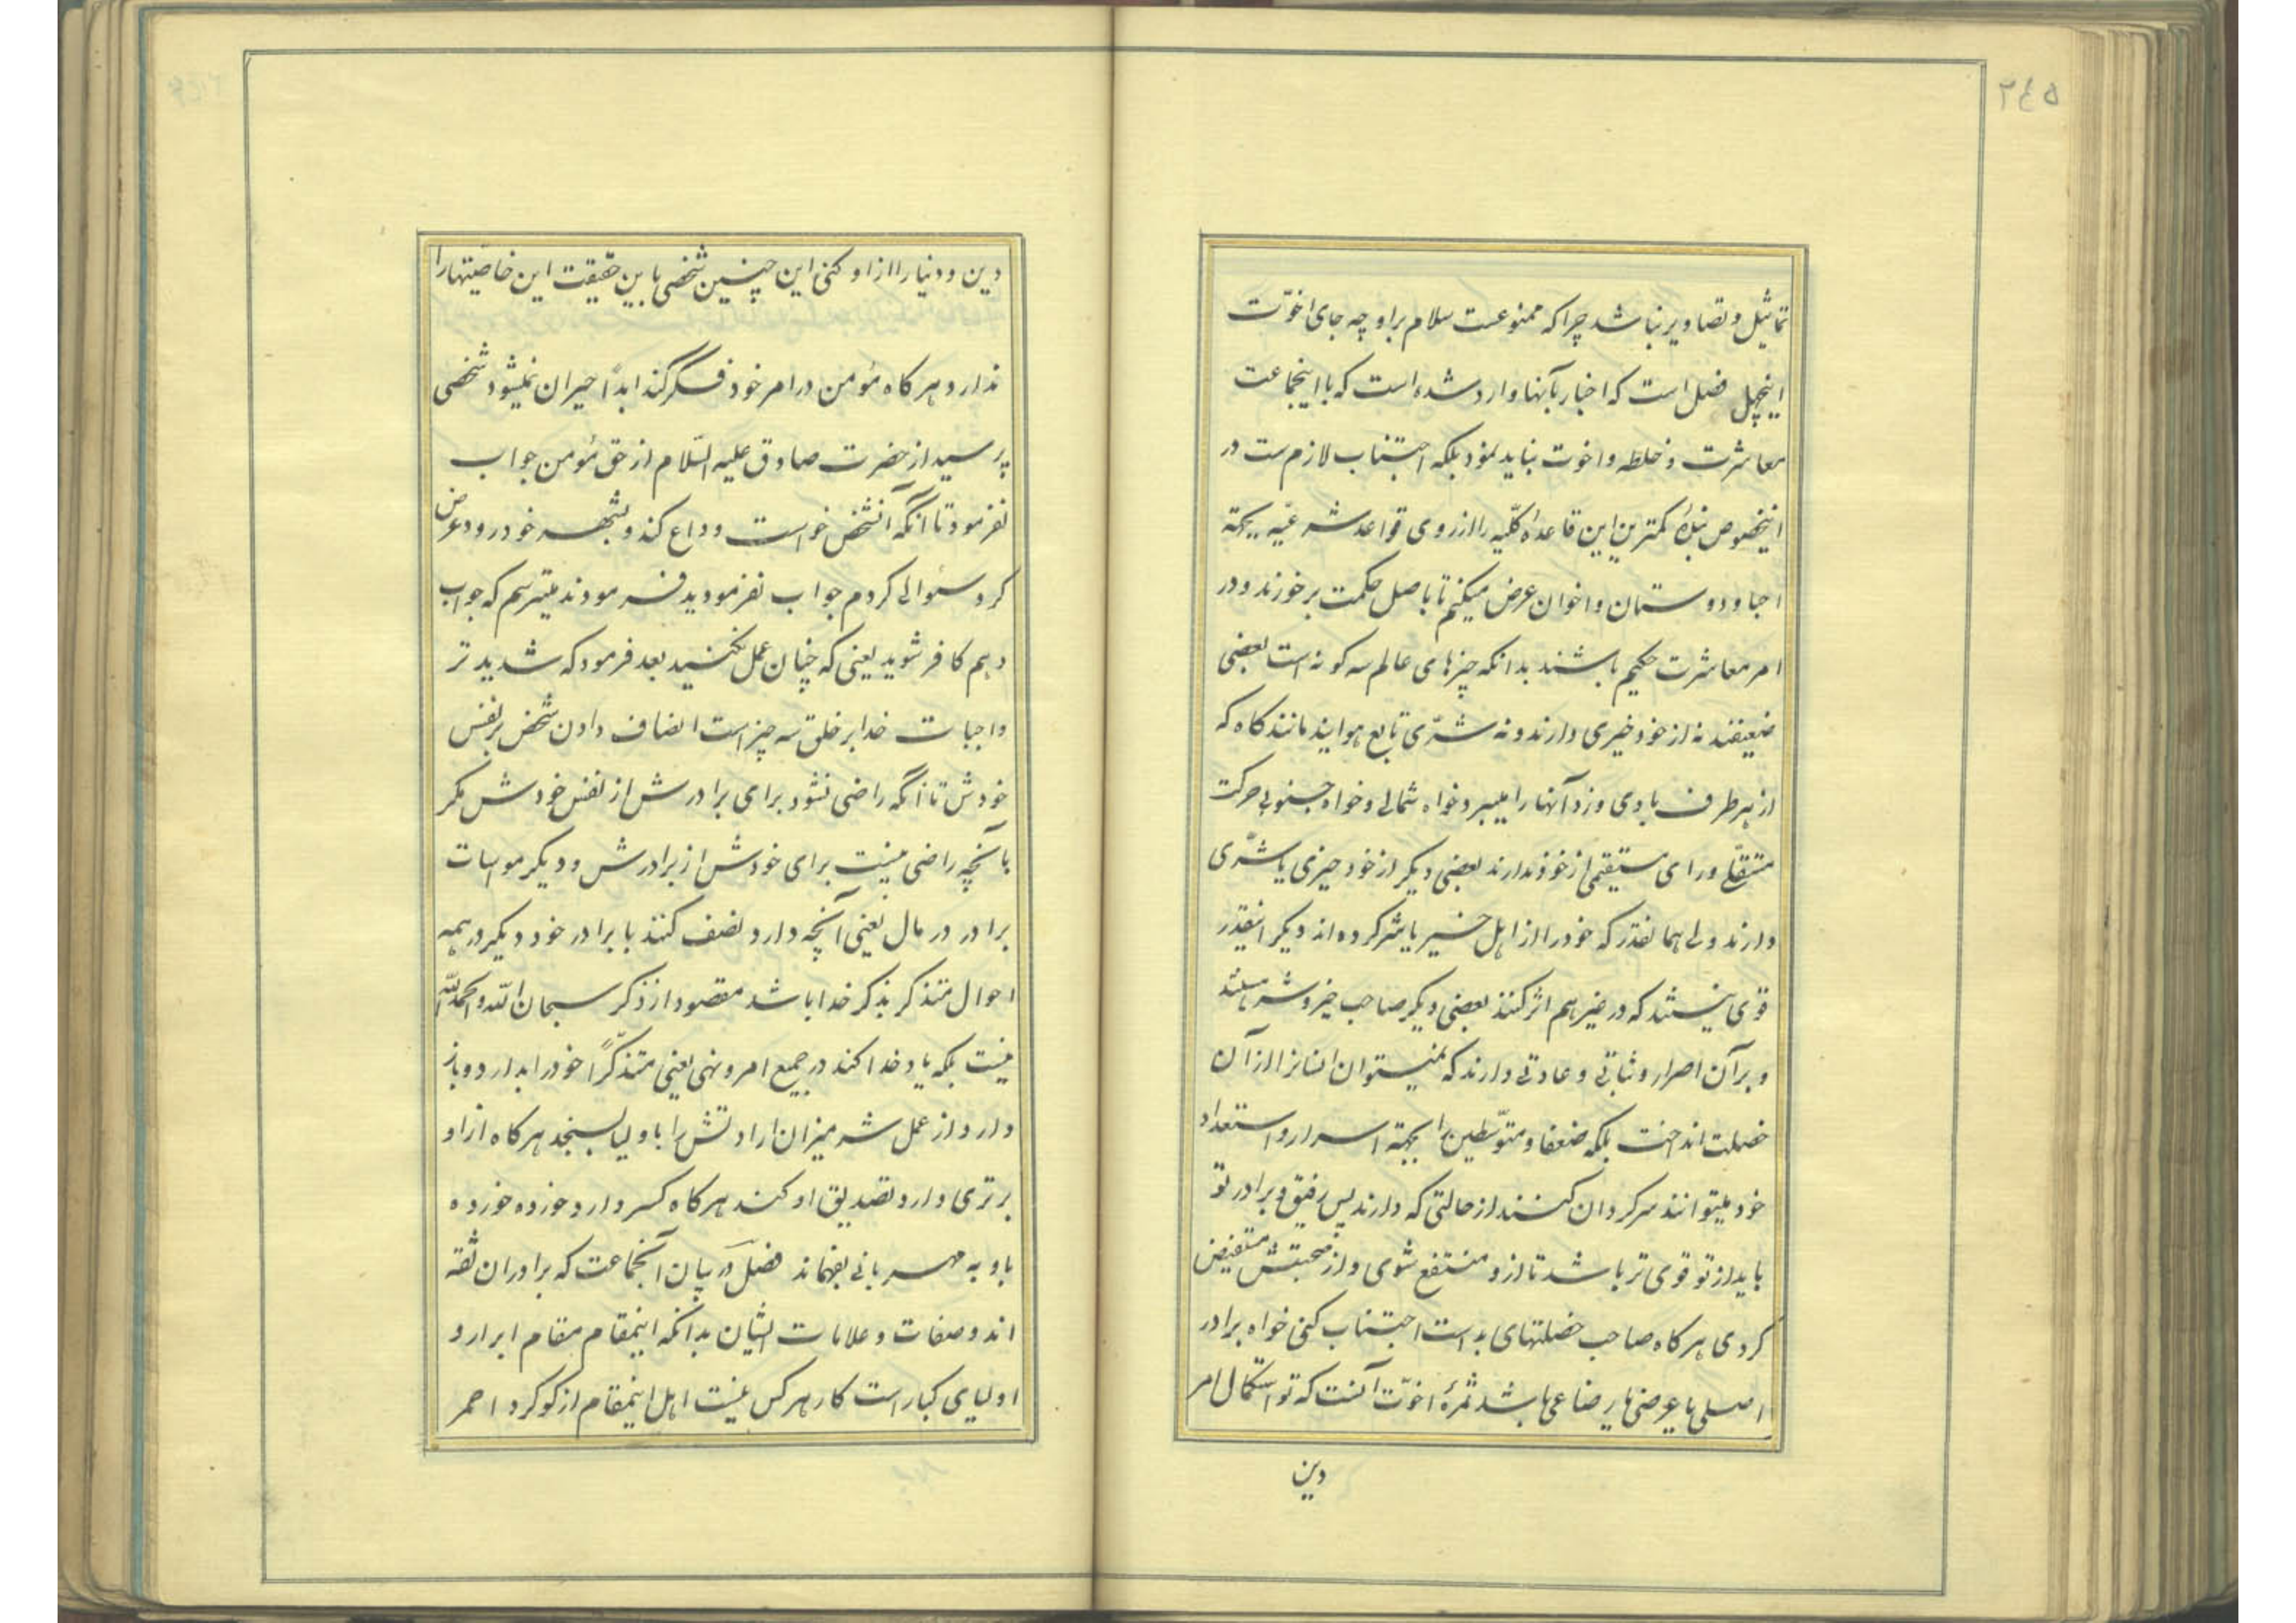 ۲٤۵
تماثیل و تصاویر نباشد چراکه ممنوعست سلام براو چه جای اخوّت
اینچهل فصل است که اخبار بآنها وارد شده است که با اینجماعت
معاشرت و خلطه و اخوت نباید نمود بلکه اجتناب لازمست در
اینخصوص بندهٔ کمترین این قاعدهٔ کلّیه را از روی قواعد شرعیّه بجهة
احبا و دوستان و اخوان عرض میکنم تا باصل حکمت برخورند و در
امر معاشرت حکیم باشند بدانکه چیزهای عالم سه کونه است بعضی
ضعیفند نه از خود خیری دارند و نه شرّی تابع هوایند مانند کاه که
از هر طرف بادی وزد آنها را میبرد خواه شمالی و خواه جنوبی حرکت
مستقلّی و رای مستقیمی از خود ندارند بعضی دیکر از خود خیری یا شرّی
دارند ولی همانقدر که خود را از اهل خیر یا شر کرده اند دیکر اینقدر
قوی نیستند که در غیر هم اثر کنند بعضی دیکر صاحب خیر و شر هستند
و بر آن اصرار و ثباتی و عادتی دارند که نمیتوان انسانرا از آن
خصلت انداخت بلکه ضعفا و متوّسطین را بجهة اسرار و استعداد
خود میتوانند سرکردان کنند از حالتی که دارند پس رفیق و برادر تو
باید از تو قوی تر باشد تا ازو منتفع شوی و از صحبتش مستفیض
کردی هرکاه صاحب خصلتهای بد است اجتناب کنی خواه برادر
اصلی یا عرضی یا رضاعی باشد ثمرهٔ اخوّت آنست که تو استکمال امر
دین
دین و دنیا را ازاو کنی این چنین شخصی باین حقیقت این خاصیتها را
ندارد و هرکاه مؤمن در امر خود فکر کند ابداً حیران نمیشود شخصی
پرسید از حضرت صادق علیه السّلام از حق مؤمن جواب
نفرمود تا آنکه آنشخص خواست وداع کند و بشهر خود رود عرض
کرد سئوالی کردم جواب نفرمودید فرمودند میترسم که جواب
دهم کافر شوید یعنی که چنان عمل نکنید بعد فرمود که شدید تر
واجبات خدا بر خلق سه چیز است انصاف دادن شخص بر نفس
خودش تا آنکه راضی نشود برای برادرش از نفس خودش مکر
بآنچه راضی نیست برای خودش از برادرش و دیکر مواسات
برادر در مال یعنی آنچه دارد نصف کند با برادر خود دیکر در همه
احوال متذکر بذکر خدا باشد مقصود از ذکر سبحان الله و الحمدلله
نیست بلکه یاد خدا کند در جمیع امر و نهی یعنی متذکّراً خود را بدارد و باز
دارد از عمل شر میزان ارادتش را باولیا بسنجد هرکاه ازاو
برتری دارد تصدیق او کند هرکاه کسر دارد خورده خورده
باو به مهربانی بفهماند فصل در بیان آنجماعت که برادران ثقه
اند و صفات و علامات ایشان بدانکه اینمقام مقام ابرار و
اولیای کبار است کار هر کس نیست اهل اینمقام از کوکرد احمر